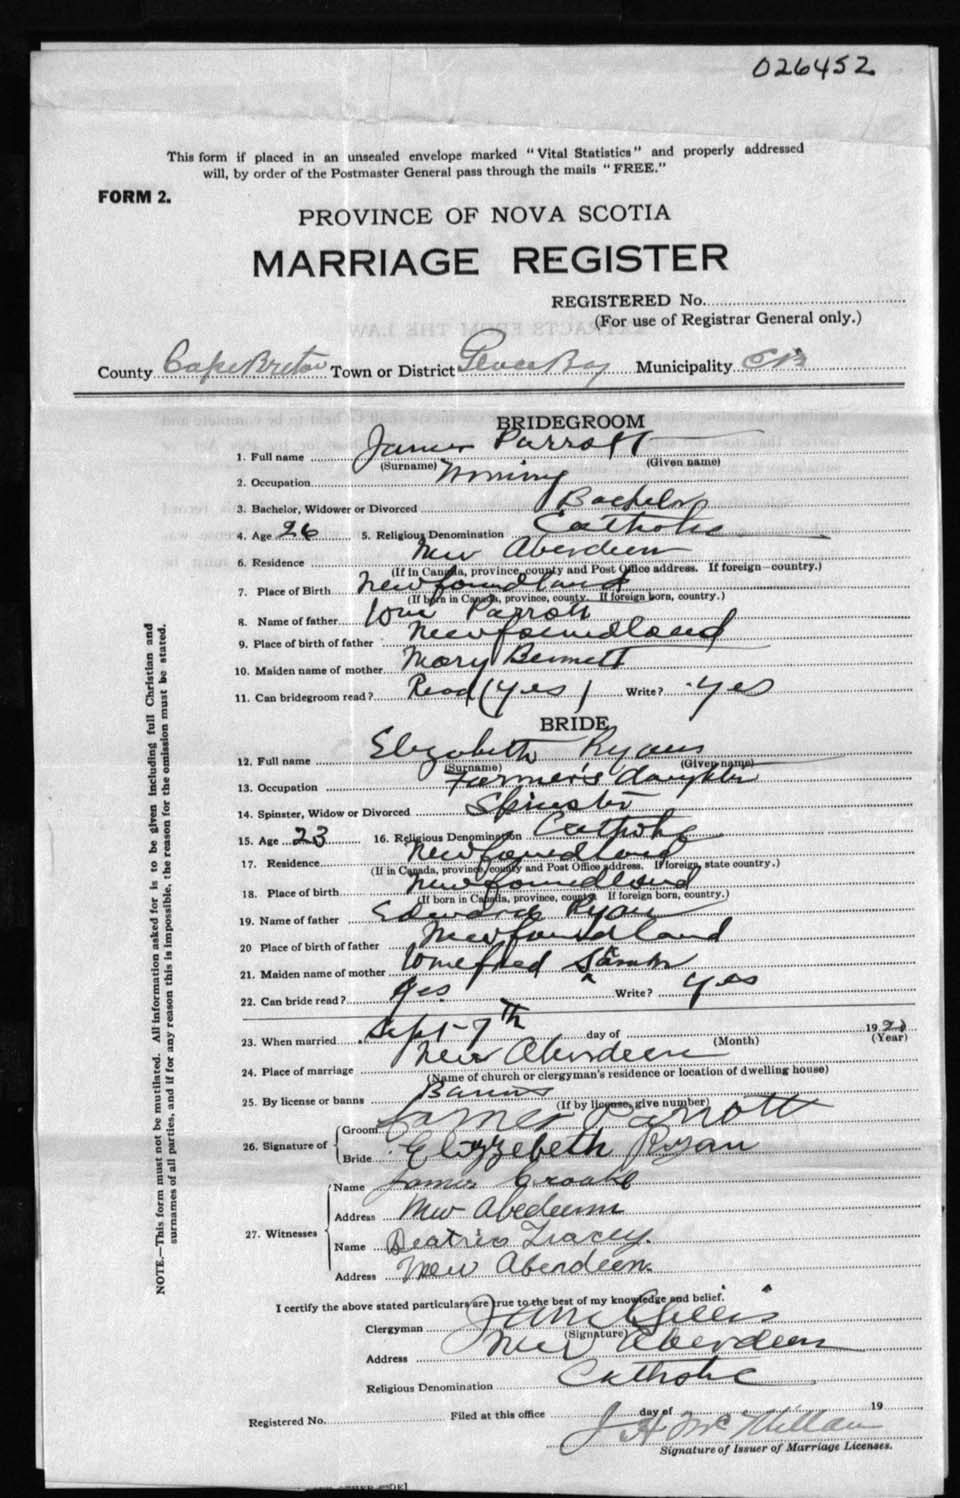 026452
This form if placed in an unsealed envelope marked "Vital Statistics" and properly addressed
will, by order of the Postmaster General pass through the mails "FREE."
FORM 2.
PROVINCE OF NOVA SCOTIA
MARRIAGE REGISTER
REGISTERED No.
(For use of Registrar General only.)
County Cape Breton Town or District Glace Bay Municipality CB
BRIDEGROOM
1. Full name James Parrott
(Surname) (Given name)
2. Occupation Mining
3. Bachelor, Widower or Divorced Bachelor
4. Age 26 5. Religious Denomination Catholic
6. Residence New Aberdeen
(If in Canada, province, county and Post Office address. If foreign—country.)
7. Place of Birth Newfoundland
(If born in Canada, province, county. If foreign born, country.)
8. Name of father Parrott
9. Place of birth of father Newfoundland
10. Maiden name of mother Mary Bennett
11. Can bridegroom read? Read (yes) Write? yes
BRIDE
12. Full name Elizabeth Ryan
(Surname) (Given name)
13. Occupation Farmer's daughter
14. Spinster, Widow or Divorced Spinster
15. Age 23 16. Religious Denomination Catholic
17. Residence Newfoundland
(If in Canada, province, county and Post Office address. If foreign, state country.)
18. Place of birth Newfoundland
(If born in Canada, province, county. If foreign born, country.)
19. Name of father Edward Ryan
20 Place of birth of father Newfoundland
21. Maiden name of mother
22. Can bride read? yes. Write? yes
23. When married Sept 7th day of (Month) 19 (Year)
24. Place of marriage New Aberdeen
(Name of church or clergyman's residence or location of dwelling house)
25. By license or banns Banns
(If by license, give number)
26. Signature of { Groom James Parrott
Bride Elizzebeth Ryan
27. Witnesses { Name James Croake
Address New Abedeen
Name Beatrice Tracey.
Address New Aberdeen.
I certify the above stated particulars are true to the best of my knowledge and belief.
Clergyman
(Signature)
Address New Aberdeen
Religious Denomination Catholic
Registered No. Filed at this office day of 19
J H McMillan
Signature of Issuer of Marriage Licenses.
NOTE.—This form must not be mutilated. All information asked for is to be given including full Christian and
surnames of all parties, and if for any reason this is impossible, the reason for the omission must be stated.